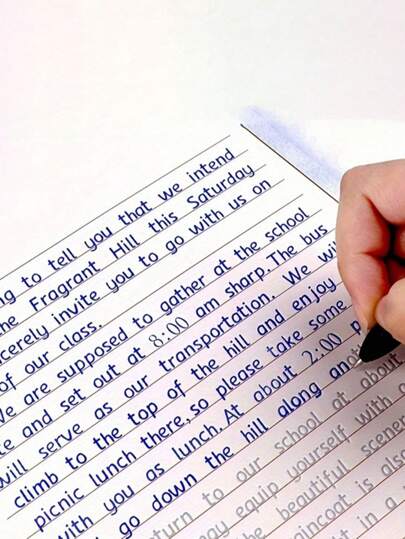 to tell you that we intend
Fragrant Hill this Saturday
invite you to go with us on
of our class.
are supposed to gather at the school
and set out at 8:00 am sharp. The bus
will serve as our transportation. We
climb to the top of the hill and enjoy
picnic lunch there, so please take some
with you as lunch. At about 2:00
go down the hill along
to our school at about
equip yourself with
beautiful
is
in a